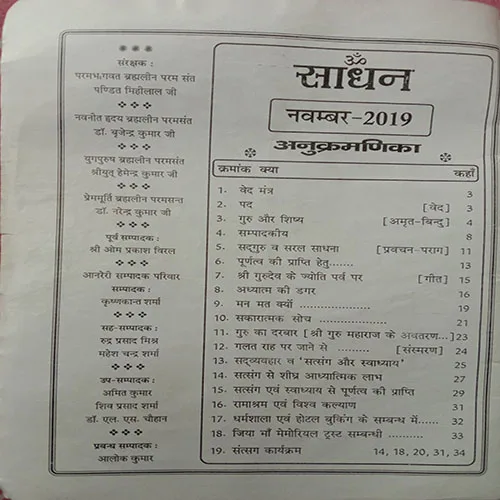 संरक्षक :
परमभागवत ब्रह्मलीन परम संत
पण्डित मिहीलाल जी
नवनीत हृदय ब्रह्मलीन परमसंत
डॉ. बृजेन्द्र कुमार जी
युगपुरुष ब्रह्मलीन परमसंत
श्रीयुत् हेमेन्द्र कुमार जी
प्रेममूर्ति ब्रह्मलीन परमसन्त
डॉ. नरेन्द्र कुमार जी
पूर्व सम्पादक :
श्री ओम प्रकाश विरल
आनरेरी सम्पादक परिवार
सम्पादक :
कृष्णकान्त शर्मा
सह-सम्पादक :
रुद्र प्रसाद मिश्र
महेश चन्द्र शर्मा
उप-सम्पादक :
अमित कुमार
शिव प्रसाद शर्मा
डॉ. एल. एस. चौहान
प्रबन्ध सम्पादक :
आलोक कुमार
ॐ
साधन
नवम्बर-2019
अनुक्रमणिका
क्रमांक क्या कहाँ
1. वेद मंत्र 3
2. पद [वेद] 3
3. गुरु और शिष्य [अमृत-बिन्दु] 4
4. सम्पादकीय 8
5. सद्गुरु व सरल साधना [प्रवचन-पराग] 11
6. पूर्णत्व की प्राप्ति हेतु....... 13
7. श्री गुरुदेव के ज्योति पर्व पर [गीत] 15
8. अध्यात्म की डगर 16
9. मन मत क्यों ............... 19
10. सकारात्मक सोच ............... 21
11. गुरु का दरबार [श्री गुरु महाराज के अवतरण...] 23
12. गलत राह पर जाने से ........ [संस्मरण] 24
13. सद्व्यवहार व 'सत्संग और स्वाध्याय' 25
14. सत्संग से शीघ्र आध्यात्मिक लाभ 27
15. सत्संग एवं स्वाध्याय से पूर्णत्व की प्राप्ति 29
16. रामाश्रम एवं विश्व कल्याण 31
17. धर्मशाला एवं होटल बुकिंग के सम्बन्ध में...... 32
18. जिया माँ मेमोरियल ट्रस्ट सम्बन्धी .......... 33
19. संत्सग कार्यक्रम 14, 18, 20, 31, 34